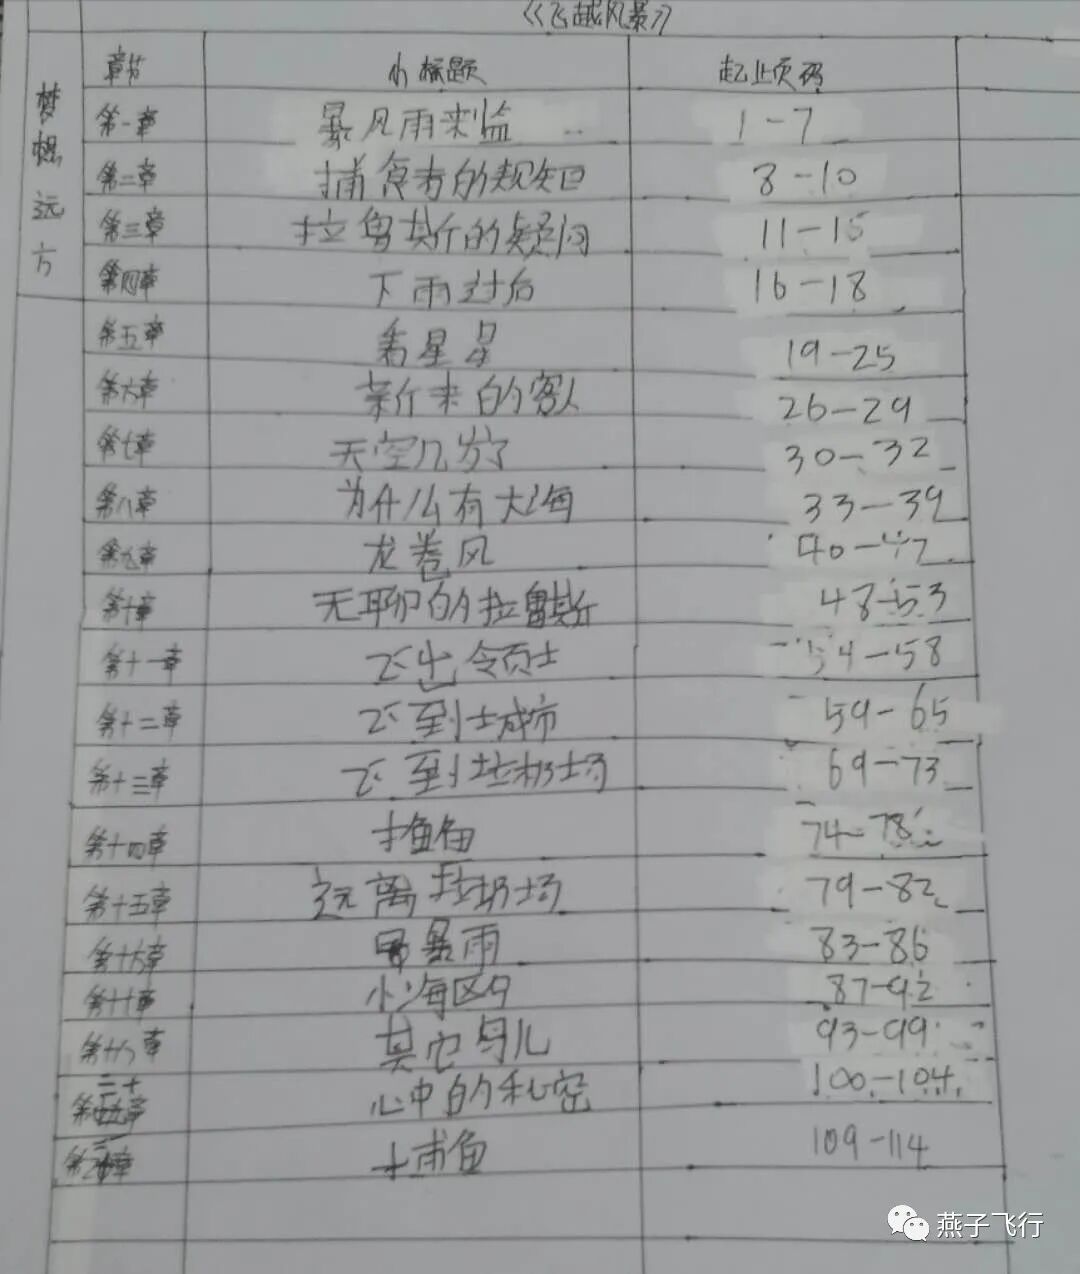 《飞越风暴》
梦想远方
章节 小标题 起止页码
第一章 暴风雨来监 1-7
第二章 捕食者的规矩 8-10
第三章 拉鲁斯的疑问 11-15
第四章 下雨过后 16-18
第五章 看星星 19-25
第六章 新来的客人 26-29
第七章 天空几岁了 30-32
第八章 为什么有大海 33-39
第九章 龙卷风 40-47
第十章 无聊的拉鲁斯 48-53
第十一章 飞出领土 54-58
第十二章 飞到城市 59-65
第十三章 飞到垃圾场 69-73
第十四章 74-78
第十五章 远离垃圾场 79-82
第十六章 暴雨 83-86
第十七章 小海区 87-92
第十八章 其它鸟儿 93-99
心中的秘密 100-104
捕鱼 109-114
燕子飞行